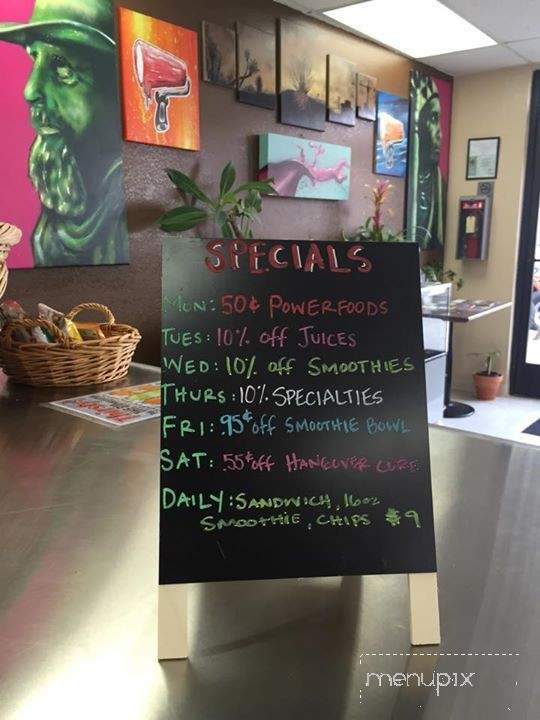 SPECIALS
MON: 50¢ POWERFOODS
TUES: 10% off JUICES
WED: 10% off SMOOTHIES
THURS: 10% SPECIALTIES
FRI: 95¢ off SMOOTHIE BOWL
SAT: 55¢ off HANGOVER CURE
DAILY: SANDWICH, 16oz
SMOOTHIE, CHIPS $9
menupix